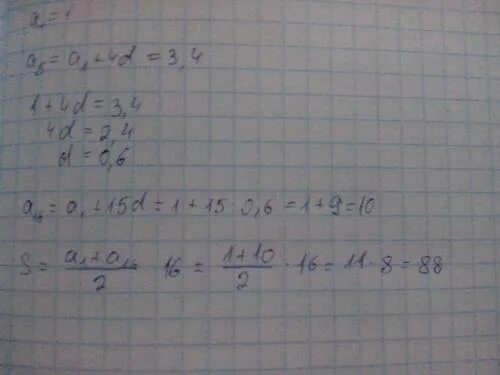 a₁ = 1
a₅ = a₁ + 4d = 3,4
1 + 4d = 3,4
4d = 2,4
d = 0,6
a₁₆ = a₁ + 15d = 1 + 15 · 0,6 = 1 + 9 = 10
S = (a₁ + a₁₆)/2 · 16 = (1 + 10)/2 · 16 = 11 · 8 = 88